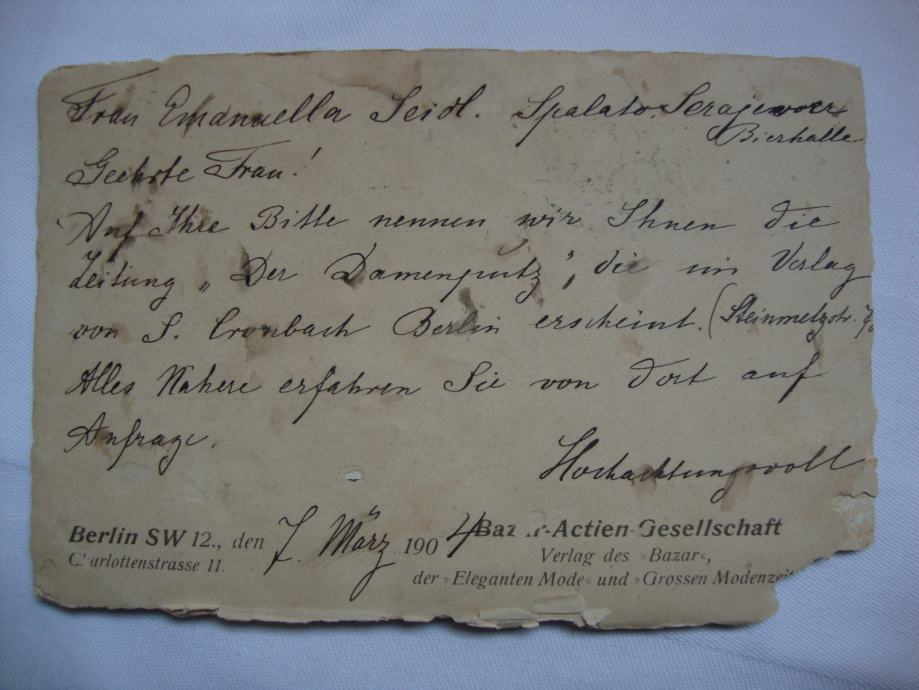 Frau Emanuella Seidl. Spalato. Serajewoer
Bierhalle
Geehrte Frau!
Auf Ihre Bitte nennen wir Ihnen die
Zeitung „Der Damenputz", die im Verlag
von S. Cronbach Berlin erscheint. (Steinmetzstr.
Alles Nähere erfahren Sie von dort auf
Anfrage.
Hochachtungsvoll
Berlin SW 12., den 7. März 1904 Bazar-Actien-Gesellschaft
Charlottenstrasse 11. Verlag des »Bazar«,
der »Eleganten Mode« und »Grossen Modenzei